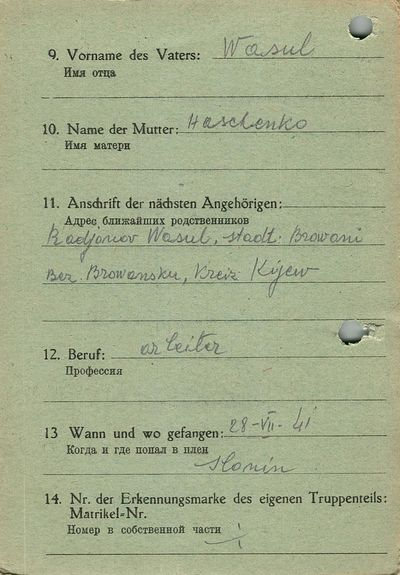 9. Vorname des Vaters: Wasul
Имя отца
10. Name der Mutter: Haschenko
Имя матери
11. Anschrift der nächsten Angehörigen:
Адрес ближайших родственников
Radjonov Wasul, stadt. Browani
Bez. Browansku, Kreiz Kijew
12. Beruf: arbeiter
Профессия
13 Wann und wo gefangen: 28-VII-41
Когда и где попал в плен
Slonin
14. Nr. der Erkennungsmarke des eigenen Truppenteils:
Matrikel-Nr.
Номер в собственной части